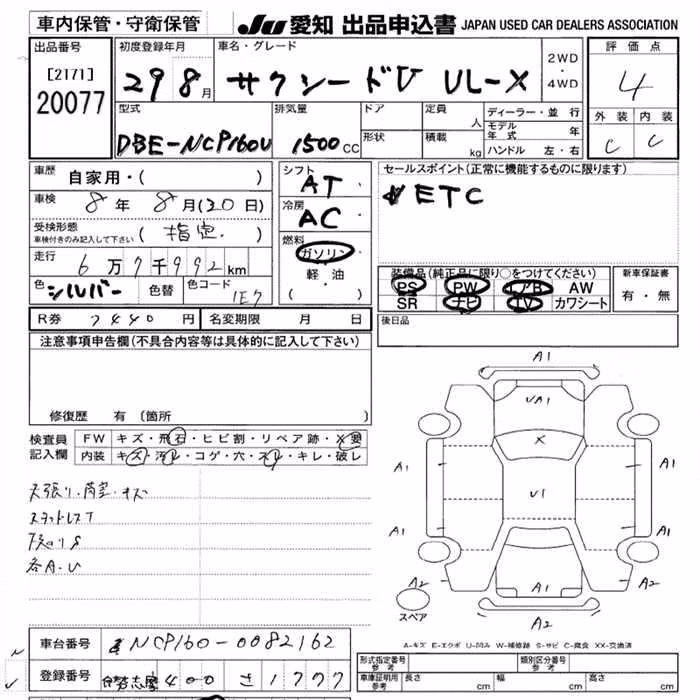 車内保管・守衛保管
JU 愛知 出品申込書 JAPAN USED CAR DEALERS ASSOCIATION
出品番号
[2171]
20077
初度登録年月
29 8月
車名・グレード
サクシードV UL-X
2WD
・
4WD
評価点
4
外装 内装
C C
型式
DBE-NCP160V
排気量
1500CC
ドア
形状
定員
人
積載
kg
ディーラー・並行
モデル年式 年
ハンドル 左・右
車歴 自家用・( )
車検 8年8月(20日)
受検形態
車検付きのみ記入して下さい ( 指定 )
走行 6万7千992km
色 シルバー 色替 色コード 1E7
シフト
AT
冷房
AC
燃料
ガソリン
・
軽油
( )
セールスポイント(正常に機能するものに限ります)
ETC
装備品(純正品に限り○をつけてください)
PS PW エアB AW
SR ナビ TV カワシート
新車保証書
有・無
R券 7440円 名変期限 月 日
後日品
注意事項申告欄(不具合内容等は具体的に記入して下さい)
修復歴 有 〔箇所 〕
検査員
記入欄
FW キズ・飛石・ヒビ割・リペア跡・X要
内装 キズ・汚レ・コゲ・穴・スレ・キレ・破レ
天張り・荷室・キズ
スタッドレスT
各A・U
A1
UA1
X
A1 A1
U1
A1 A1
A2 A1 A2
A2
スペア
A-キズ E-エクボ U-凹み W-補修跡 S-サビ C-腐食 XX-交換済
車台番号 NCP160-0082162
登録番号 400 さ 1777
形式指定番号
参考
類別区分番号
参考
車庫証明用
参考
長さ cm 幅 cm 高さ cm